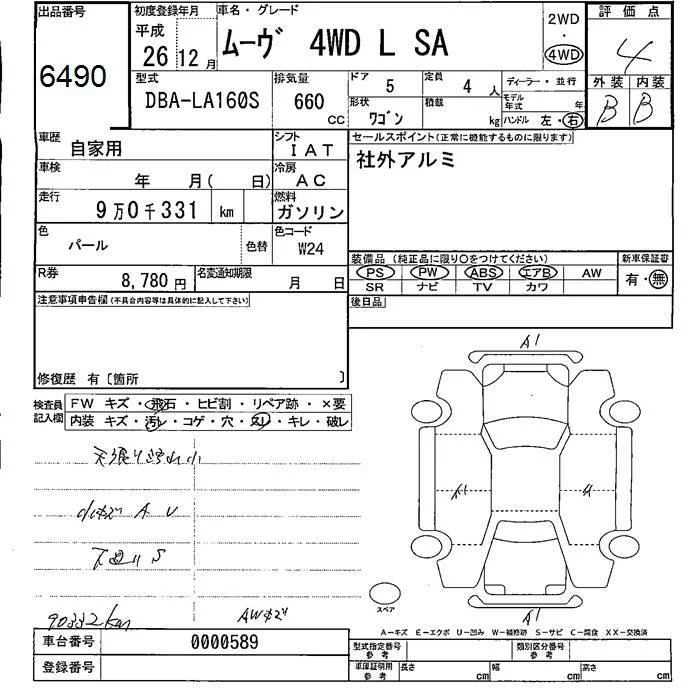 出品番号 初度登録年月 車名・グレード 評価点
6490 平成 26 12月 ムーヴ 4WD L SA 2WD ・ 4WD 4
型式 排気量 ドア 5 定員 4人 ディーラー・並行 外装 内装
DBA-LA160S 660 CC 形状 ワゴン 積載 kg モデル年式 年 ハンドル 左・右 B B
車歴 自家用 シフト IAT セールスポイント(正常に機能するものに限ります)
車検 年 月( 日) 冷房 AC 社外アルミ
走行 9万0千331 km 燃料 ガソリン
色 パール 色替 色コード W24
装備品 (純正品に限り○をつけてください) 新車保証書
R券 8,780円 名変通知期限 月 日 PS PW ABS エアB AW 有・無
SR ナビ TV カワ
注意事項申告欄(不具合内容等は具体的に記入して下さい) 後日品
修復歴 有〔箇所 〕
検査員記入欄 FW キズ・飛石・ヒビ割・リペア跡・×要
内装 キズ・汚レ・コゲ・穴・スレ・キレ・破レ
A1
A1
小キズ A U
下廻り S
スペア
A1
90332km AWキズ
A-キズ E-エクボ U-凹み W-補修跡 S-サビ C-腐食 XX-交換済
車台番号 0000589 型式指定番号 参考 類別区分番号 参考
登録番号 車庫証明用 参考 長さ cm 幅 cm 高さ cm